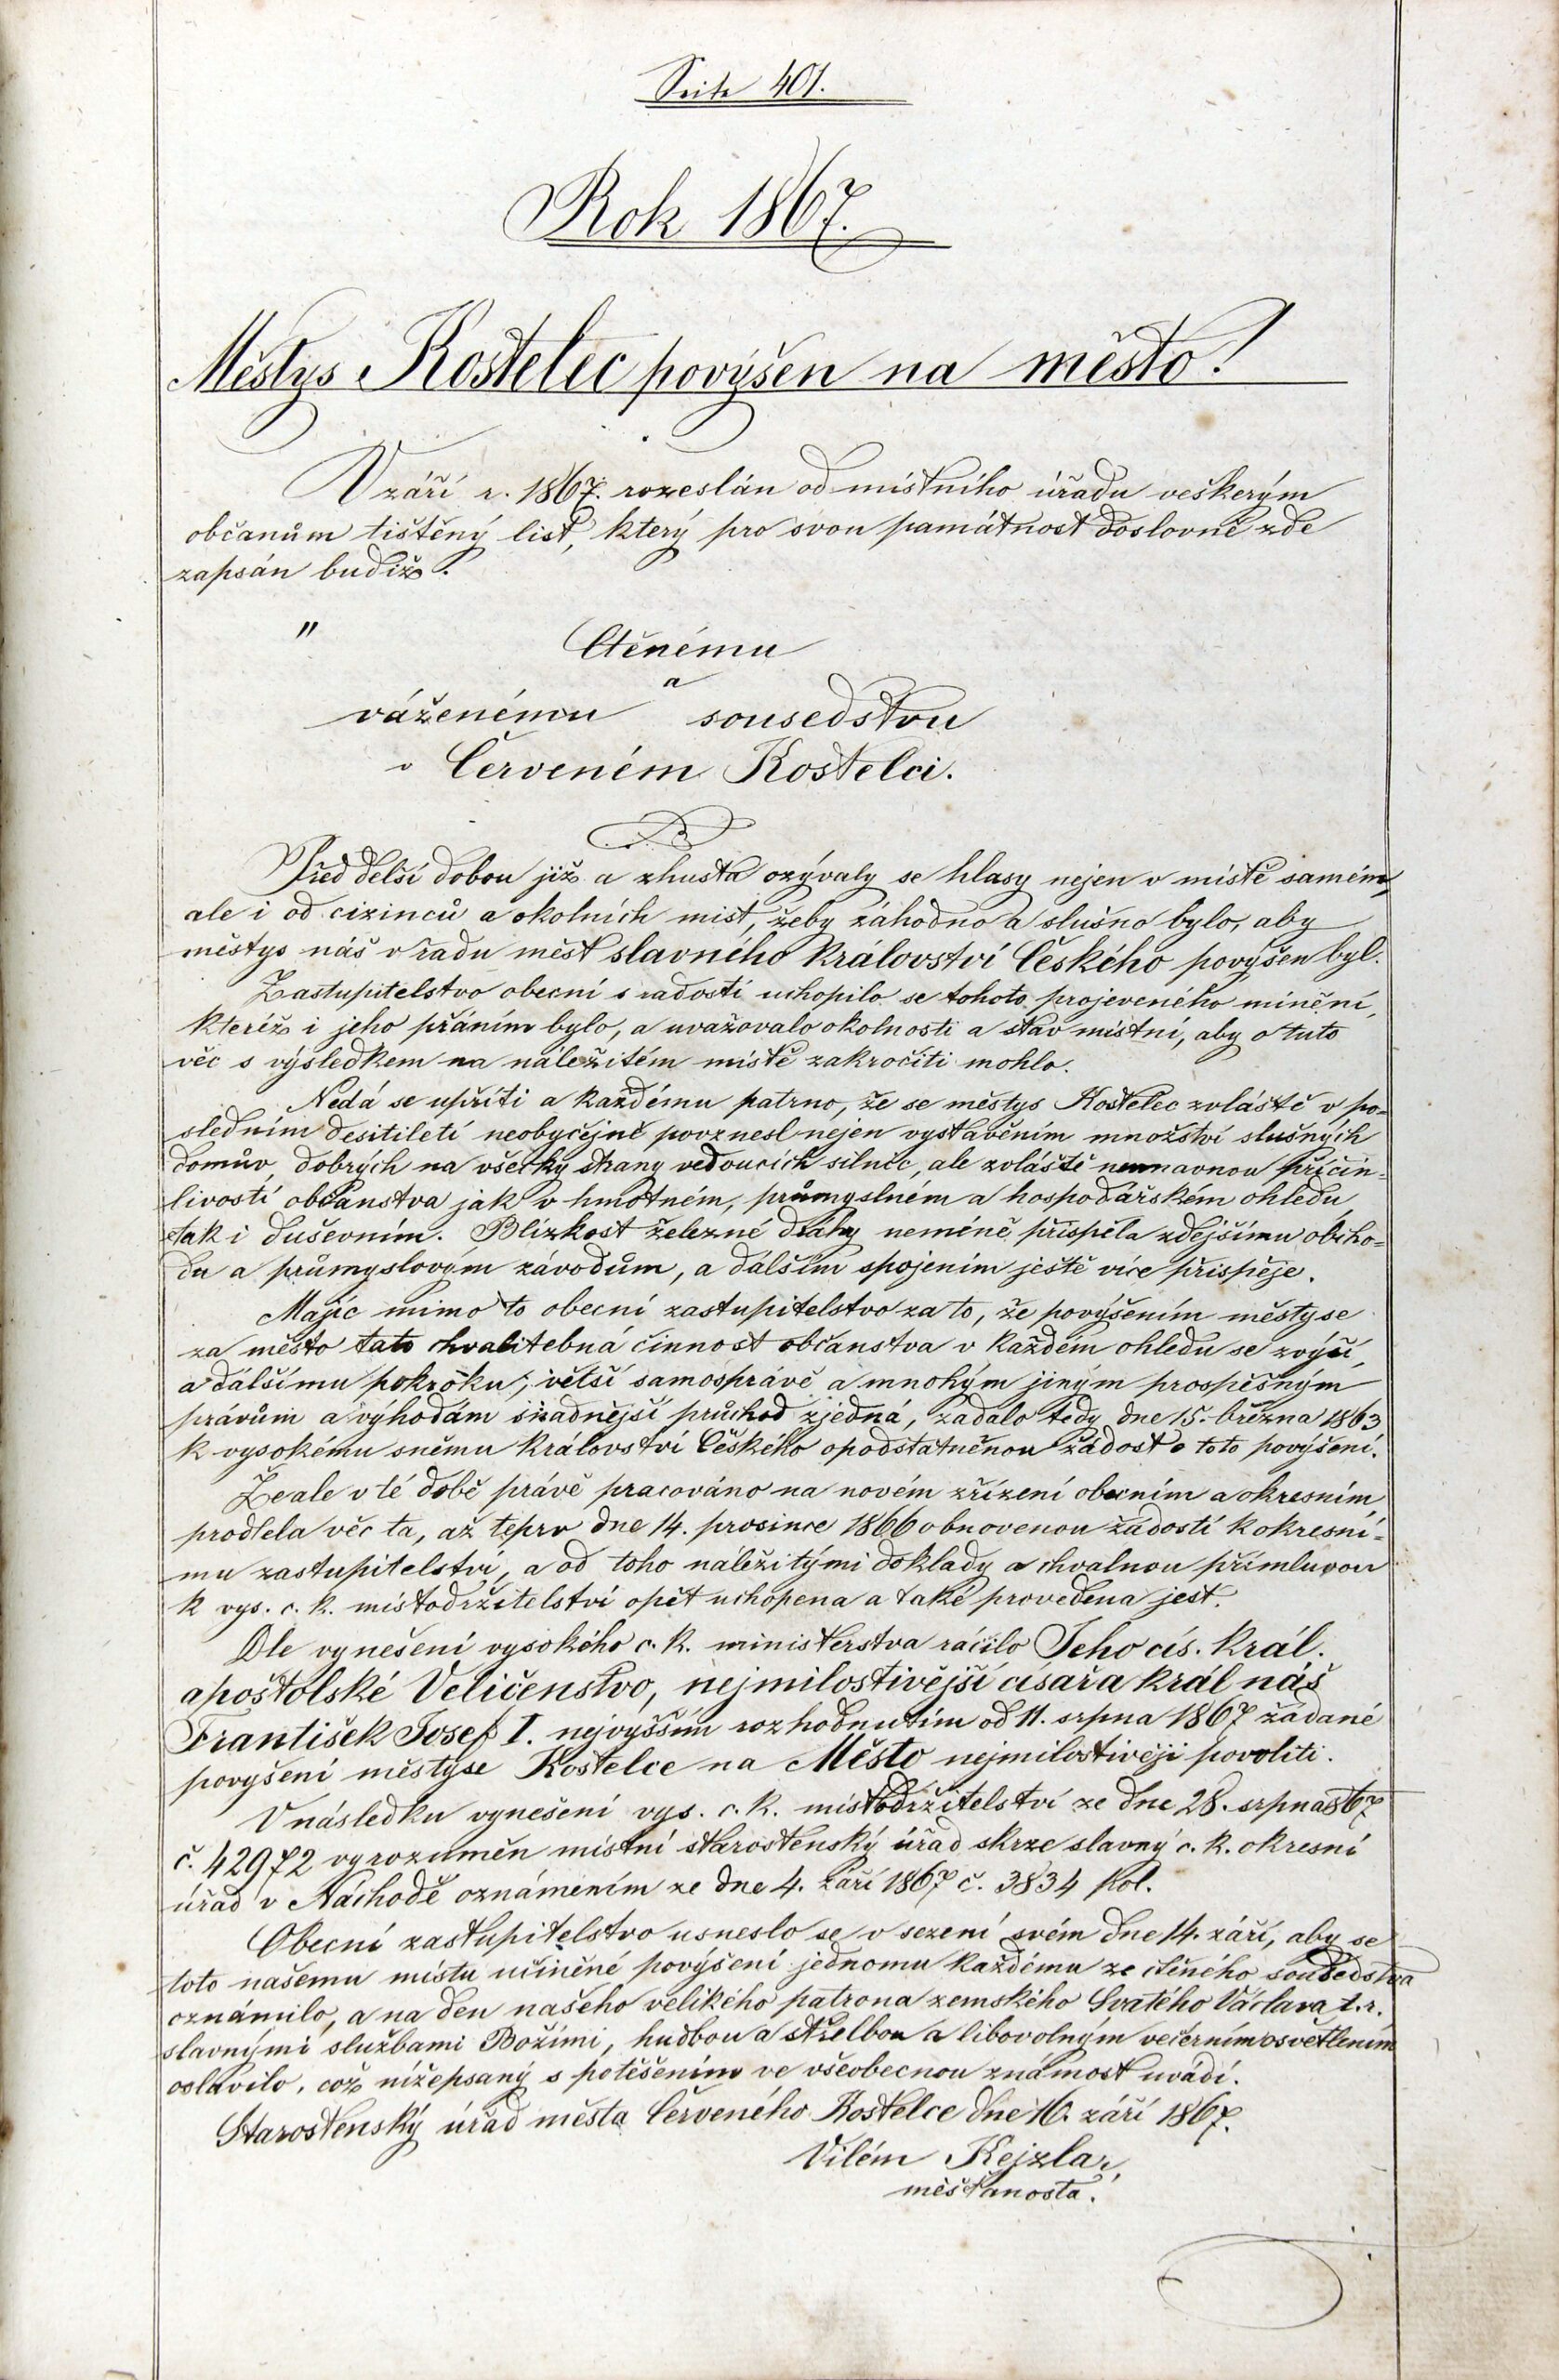 Seite 401.
Rok 1867.
Městys Kostelec povýšen na město!
V září r. 1867. rozeslán od místního úřadu veškerým
občanům tištěný list, který pro svou památnost doslovně zde
zapsán budiž.
"
Ctěnému
a
váženému sousedstvu
v Červeném Kostelci.
Před delší dobou již a zhusta ozývaly se hlasy nejen v místě samém,
ale i od cizinců a okolních míst, žeby záhodno a slušno bylo, aby
městys náš v řadu měst slavného Království Českého povýšen byl.
Zastupitelstvo obecní s radostí uchopilo se tohoto projeveného mínění,
kteréž i jeho přáním bylo, a uvažovalo okolnosti a stav místní, aby o tuto
věc s výsledkem na náležitém místě zakročiti mohlo.
Nedá se upříti a každému patrno, že se městys Kostelec zvláště v po=
sledním desítiletí neobyčejně povznesl nejen vystavěním množství slušných
domův, dobrých na všecky strany vedoucích silnic, ale zvláště neunavnou příčin=
livostí občanstva jak v hmotném, průmyslném a hospodářském ohledu,
tak i duševním. Blízkost železné dráhy neméně přispěla zdejšímu obcho=
du a průmyslovým závodům, a dálším spojením ještě více přispěje.
Majíc mimo to obecní zastupitelstvo za to, že povýšením městyse
za město tato chvalitebná činnost občanstva v každém ohledu se zvýší,
a dálšímu pokroku, větší samosprávě a mnohým jiným prospěšným
právům a výhodám snadnější průchod zjedná, zadalo tedy dne 15. března 1863
k vysokému sněmu Království Českého opodstatněnou žádost o toto povýšení.
Že ale v té době právě pracováno na novém zřízení obecním a okresním
prodlela věc ta, až teprv dne 14. prosince 1866 obnovenou žádostí k okresní=
mu zastupitelství, a od toho náležitými doklady a chvalnou přímluvou
k vys. c. k. místodržitelství opět uchopena a také provedena jest.
Dle vynešení vysokého c. k. ministerstva ráčilo Jeho cís. král.
apoštolské Veličenstvo, nejmilostivější císař a král náš
František Josef I. nejvyšším rozhodnutím od 11. srpna 1867 žádané
povyšení městyse Kostelce na Město nejmilostivěji povoliti.
V následku vynešení vys. c. k. místodržitelství ze dne 28. srpna 867
č. 42972 vyrozuměn místní starostenský úřad skrze slavný c. k. okresní
úřad v Náchodě oznámením ze dne 4. září 1867 č. 3834 pol.
Obecní zastupitelstvo usneslo se v sezení svém dne 14. září, aby se
toto našemu místu učiněné povýšení jednomu každému ze ctěného sousedstva
oznámilo, a na den našeho velikého patrona zemského Svatého Václava t. r.
slavnými službami Božími, hudbou a střelbou a libovolným večerním osvětlením
oslavilo, což nížepsaný s potěšením ve všeobecnou známost uvádí.
Starostenský úřad města Červeného Kostelce dne 16. září 1867.
Vilém Kejzlar,
měšťanosta.